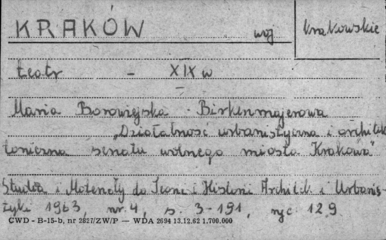 KRAKÓW woj krakowskie
teatr - XIX w
Maria Borowiejska - Birkenmajerowa
„Działalność urbanistyczna i archite
toniczna senatu wolnego miasta Krakowa"
Studia i Materiały do Teorii i Historii Archit. i Urbanis-
tyki 1963 nr. 4, s. 3-191, ryc 129
CWD - B-15-b, nr 2827/ZW/P — WDA 2694 13.12.62 1.700.000